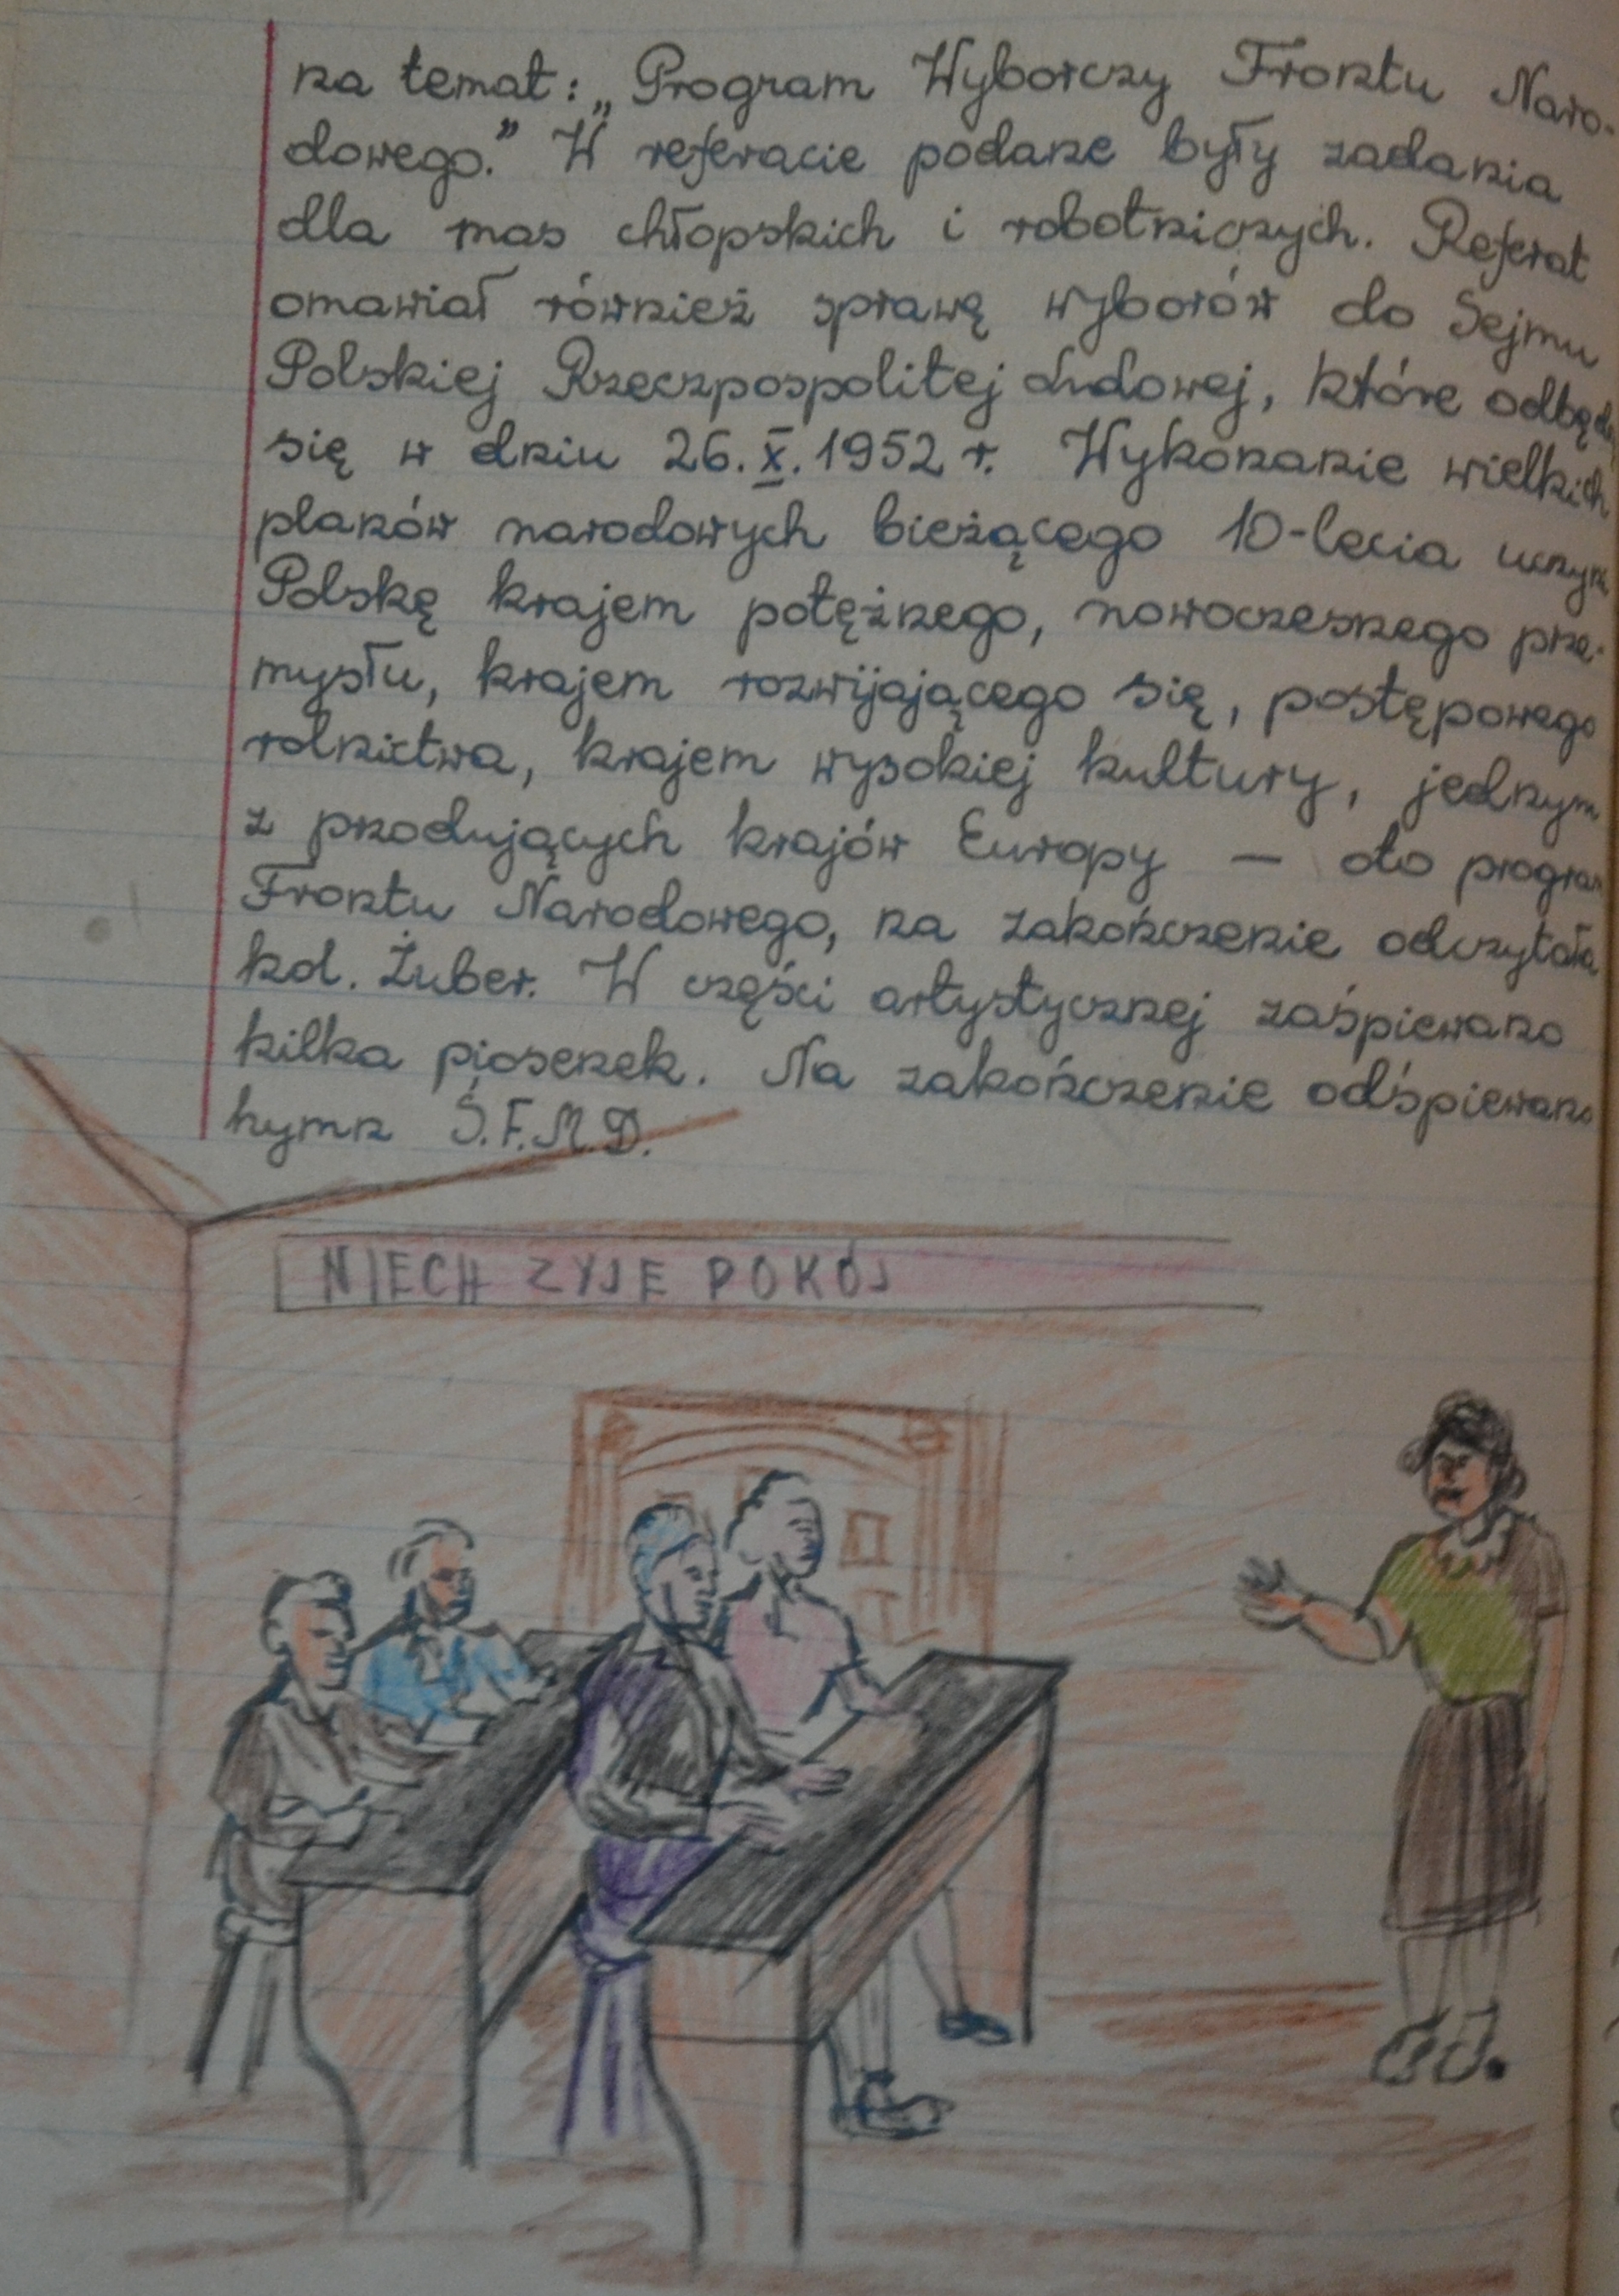 na temat: „Program Wyborczy Frontu Naro-
dowego.” W referacie podane były zadania
dla mas chłopskich i robotniczych. Referat
omawiał również sprawę wyborów do Sejmu
Polskiej Rzeczpospolitej Ludowej, które odbędą
się w dniu 26.X.1952 r. Wykonanie wielkich
planów narodowych bieżącego 10-lecia uczyni
Polskę krajem potężnego, nowoczesnego prze-
mysłu, krajem rozwijającego się, postępowego
rolnictwa, krajem wysokiej kultury, jednym
z przodujących krajów Europy — oto program
Frontu Narodowego, na zakończenie odczytała
kol. Żuber. W części artystycznej zaśpiewano
kilka piosenek. Na zakończenie odśpiewano
hymn Ś.F.M.D.
NIECH ZYJE POKÓJ